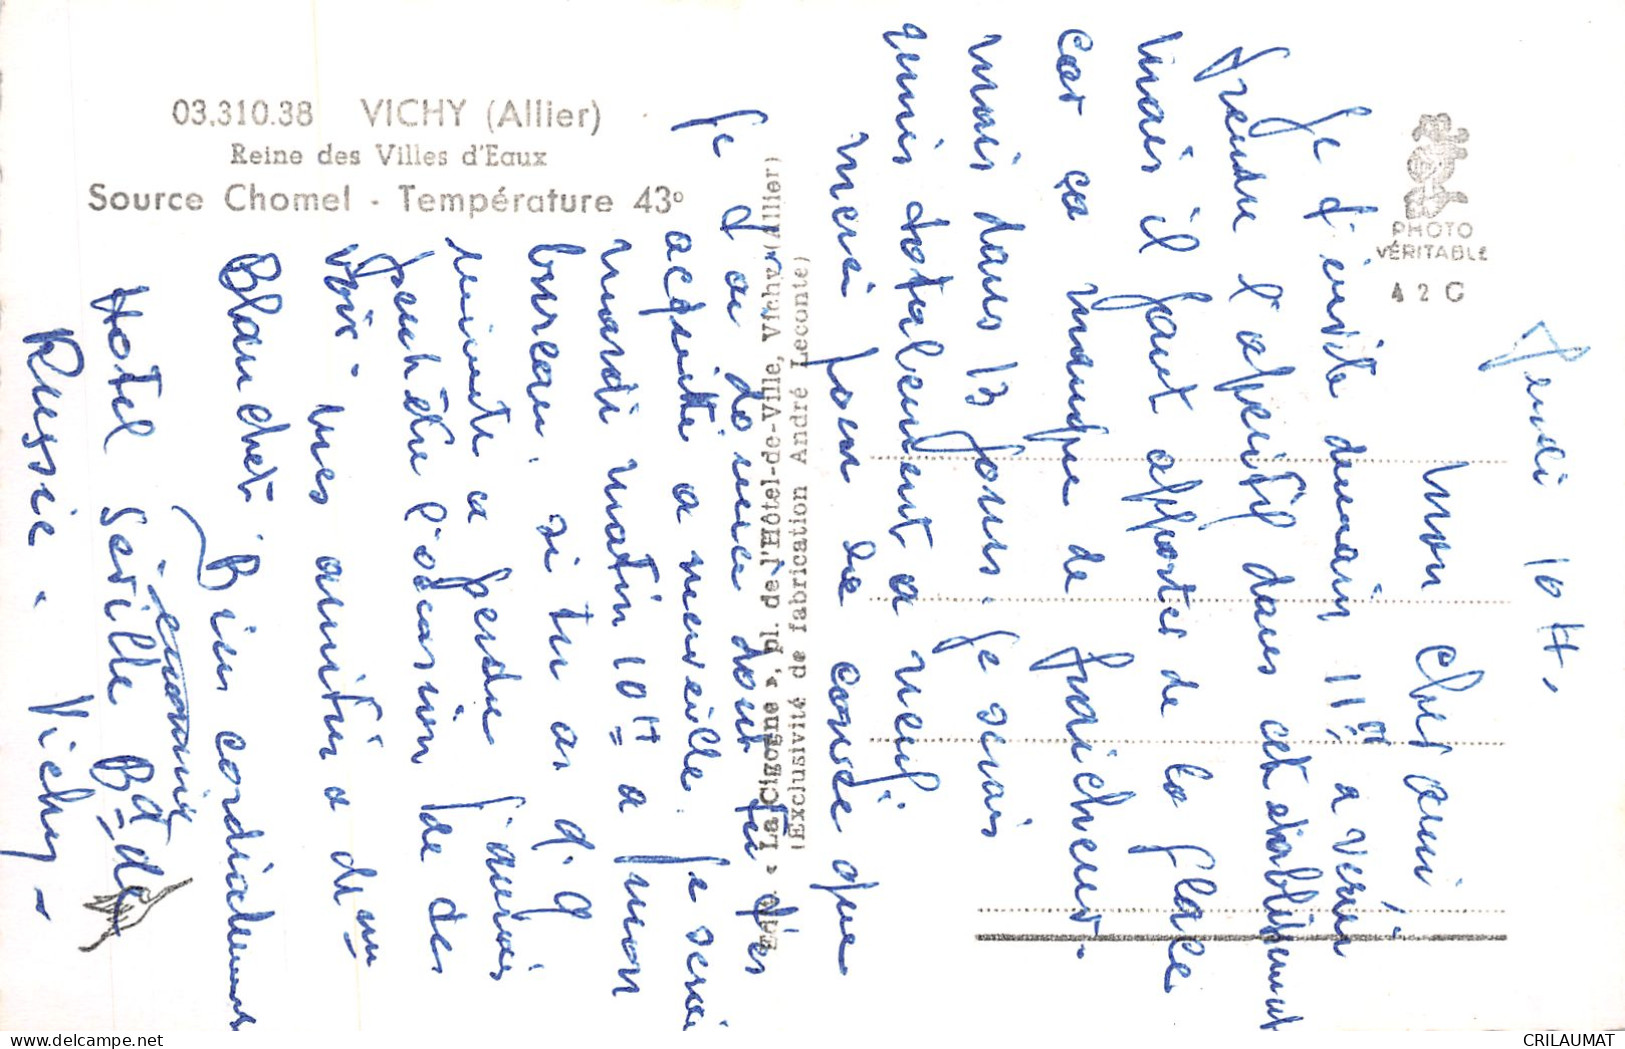 03.310.38 VICHY (Allier)
Reine des Villes d'Eaux
Source Chomel - Température 43°
PHOTO
VÉRITABLE
42 C
« La Cigogne », pl. de l'Hôtel-de-Ville, Vichy (Allier)
(Exclusivité de fabrication André Leconte)
Jeudi 10 H,
mon cher ami
Je t'invite demain 11H a venir
prendre l'apéritif dans cet établissement
mais il faut apporter de la glace
car ca manque de fraicheur.
mais dans 13 jours je serais
muni totalement a neuf
merci pour ce que
Je t'ai donné dont tu t'es
acquitté a merveille. Je serai
mardi matin 10H a mon
bureau. si tu as q.q
minute a perdre j'aurais
peut-être l'occasion de
voir. mes amitiés a
Blanchet. Bien cordialement
Hotel Séville Bd de
Russie. Vichy-
CRILAUMAT